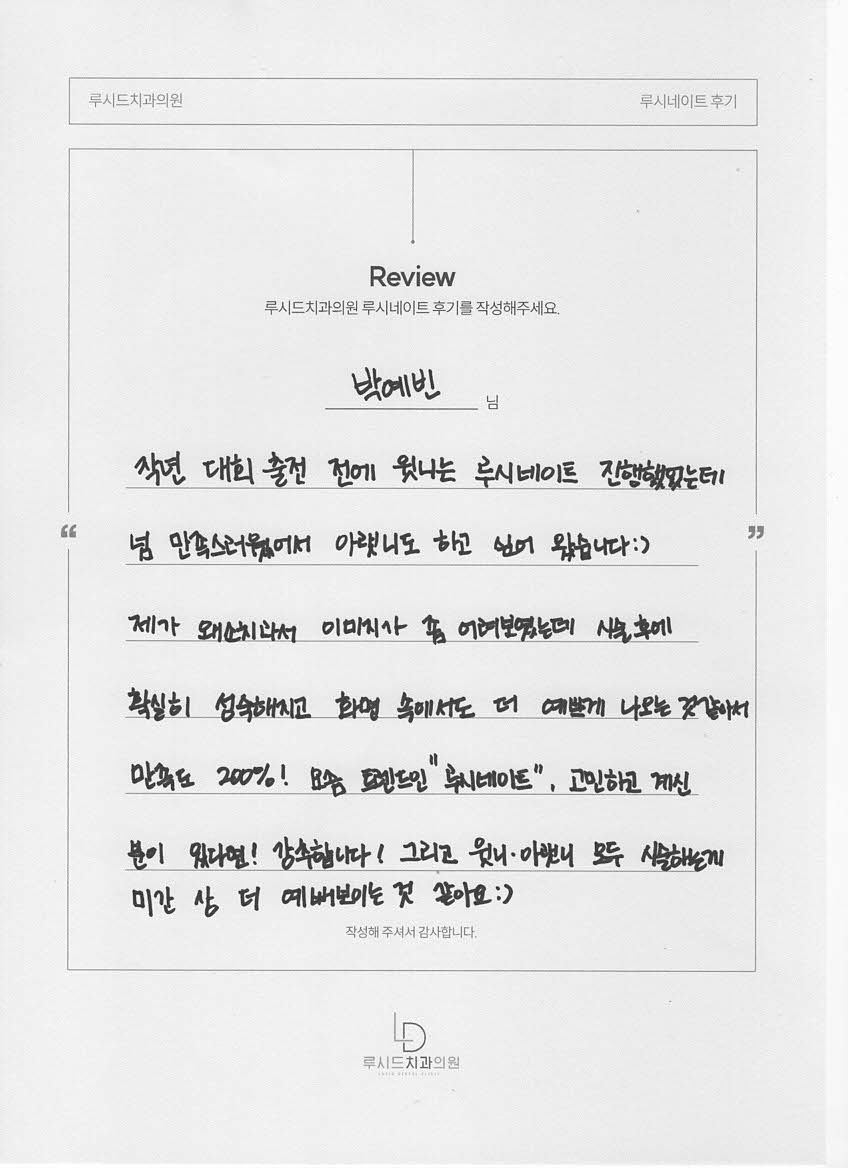 루시드치과의원
루시네이트 후기
Review
루시드치과의원 루시네이트 후기를 작성해주세요.
박예빈 님
작년 대회 출전 전에 윗니는 루시네이트 진행했었는데
넘 만족스러웠어서 아랫니도 하고 싶어 왔습니다:)
“ ”
제가 왜소치라서 이미지가 좀 어려보였는데 시술후에
확실히 성숙해지고 화면 속에서도 더 예쁘게 나오는 것같아서
만족도 200%! 요즘 트렌드인 "루시네이트", 고민하고 계신
분이 있다면! 강추합니다! 그리고 윗니·아랫니 모두 시술하는게
미간 상 더 예뻐보이는 것 같아요:)
작성해 주셔서 감사합니다.
LD
루시드치과의원
LUCID DENTAL CLINIC